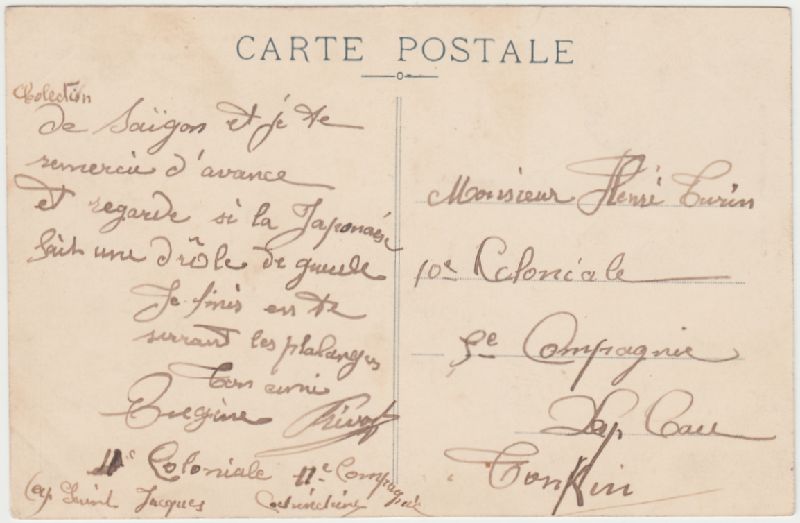 CARTE POSTALE
Colection
de Saïgon et je te
remercie d'avance
et regarde si la Japonaise
fait une drôle de gueule
Je finis en te
serrant les phalanges
Ton ami
Eugène
11e Coloniale 11e Compagnie
Cap Saint Jacques Cochinchine
Monsieur Henri Turin
10e Coloniale
5e Compagnie
Dap Cau
Tonkin